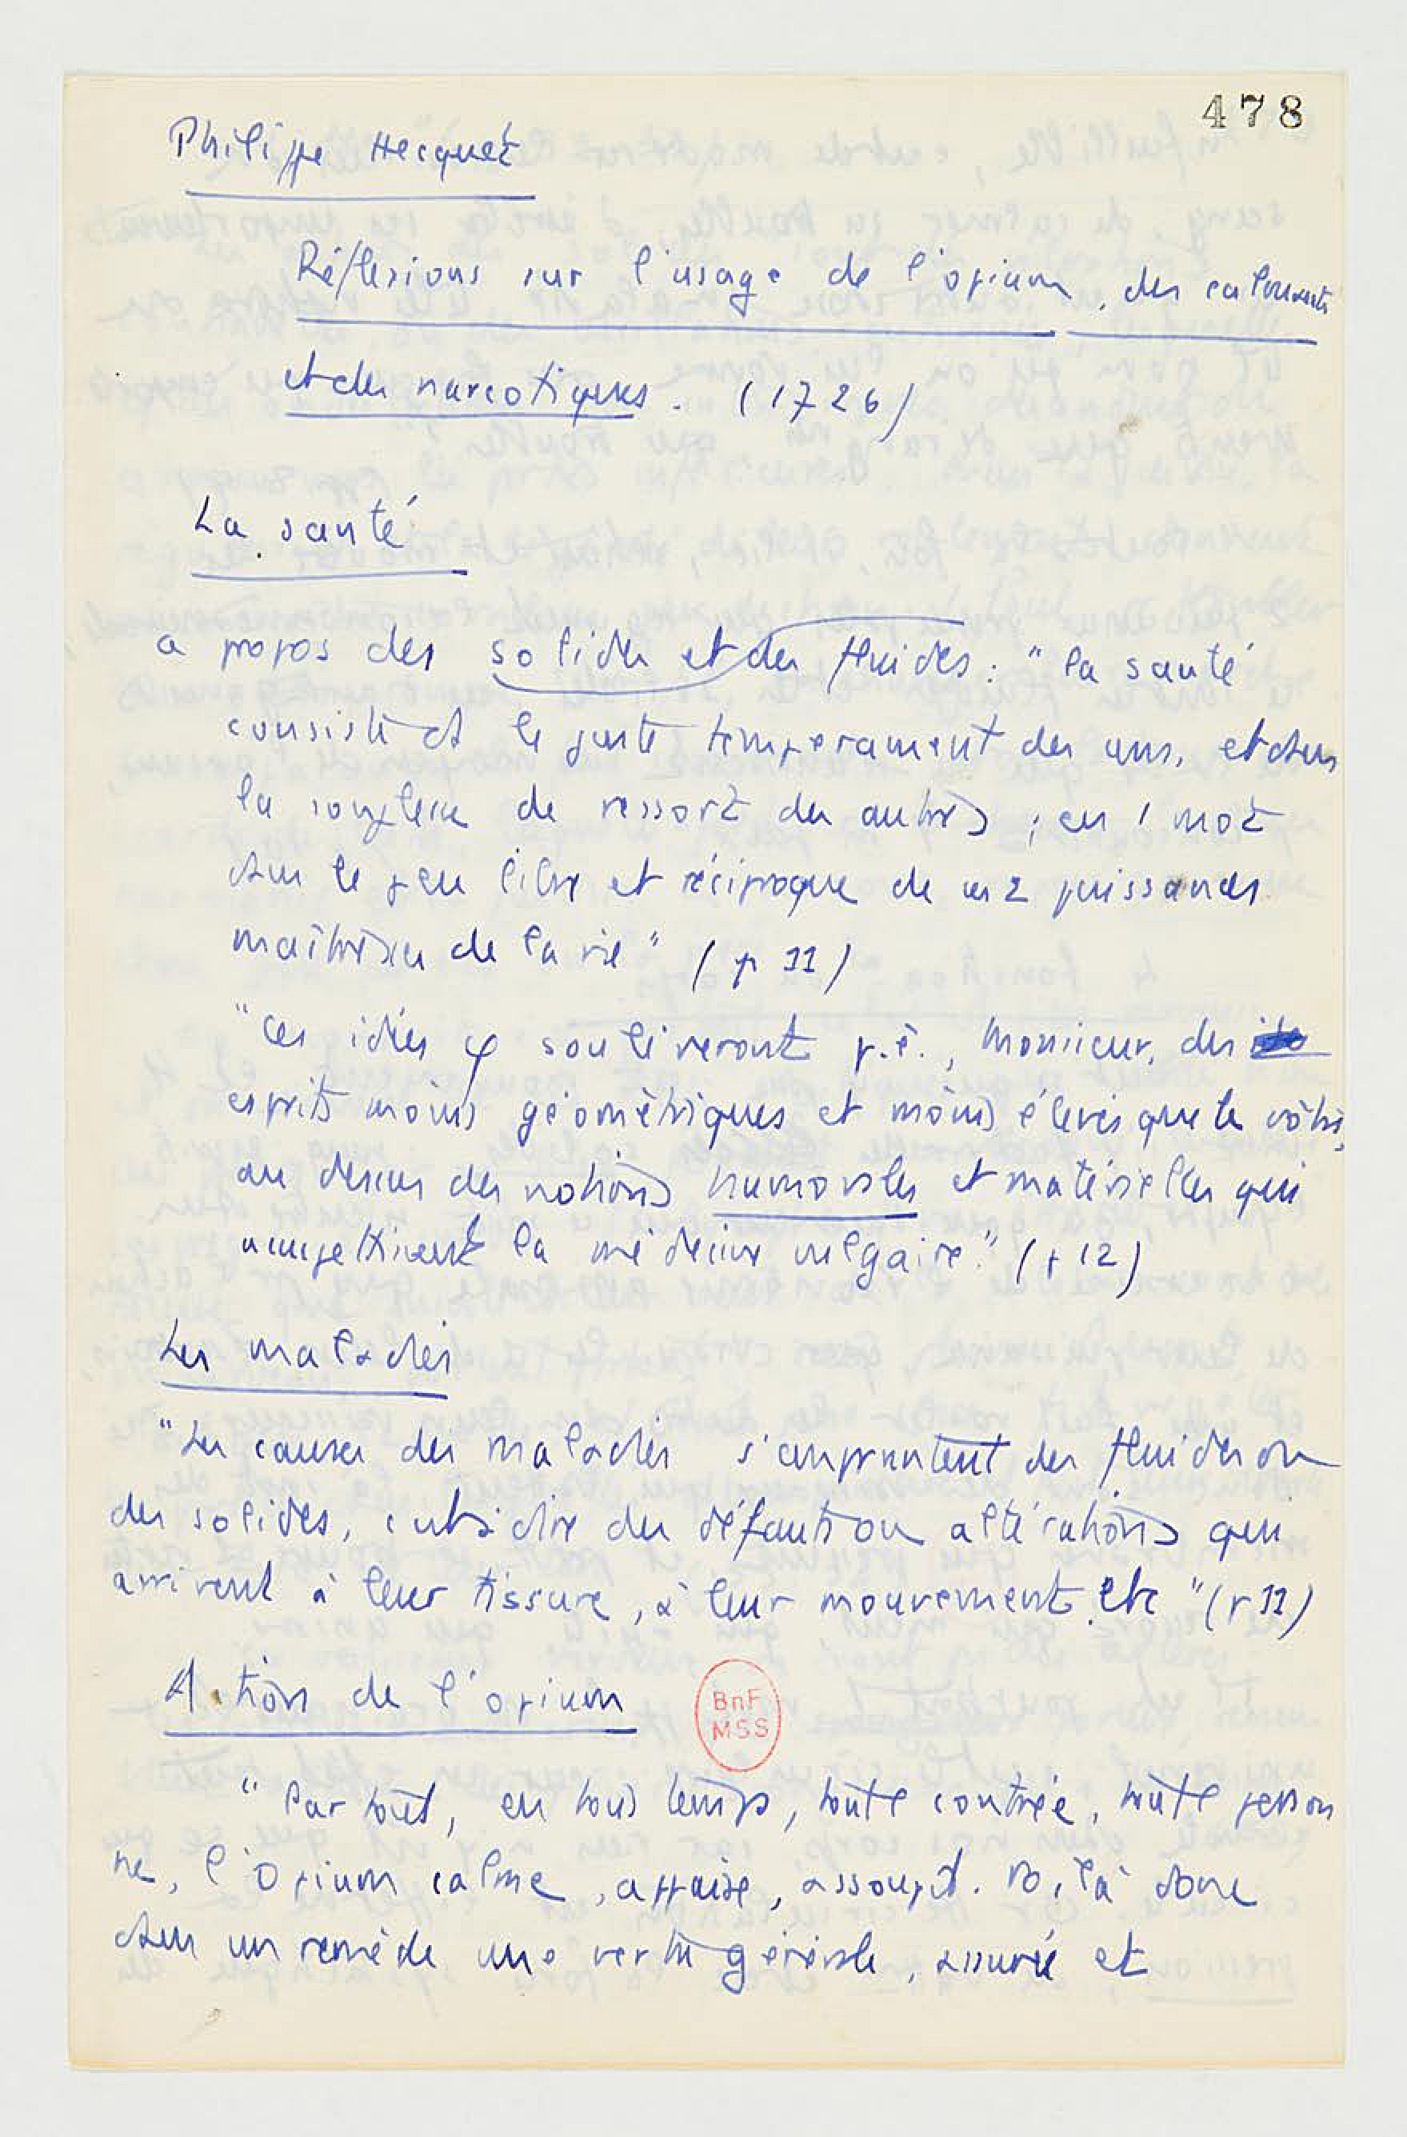 478
Philippe Hecquet
Réflexions sur l'usage de l'opium, des calmants
et des narcotiques. (1726)
La santé
a propos des solides et des fluides : "la santé
consiste ds le juste tempérament des uns, et dans
la souplesse de ressort des autres ; en 1 mot
dans le jeu libre et réciproque de ces 2 puissances
maîtresses de la vie" (p 11)
"Ces idées φ soulèveront p.ê., Monsieur, des
esprits moins géométriques et moins élevés que le vôtre,
au dessus des notions humorales et matérielles qui
la médecine vulgaire." (p 12)
Les maladies
"Les causes des maladies s'empruntent des fluides ou
des solides, c'est à dire des défauts ou altérations qui
arrivent à leur tissure, à leur mouvement etc" (p 11)
Action de l'opium
"Partout, en tous temps, toute contrée, toute person
ne, l'Opium calme, appaise, assoupit. Voilà donc
dans un remède une vertu générale, assurée et
BnF
MSS